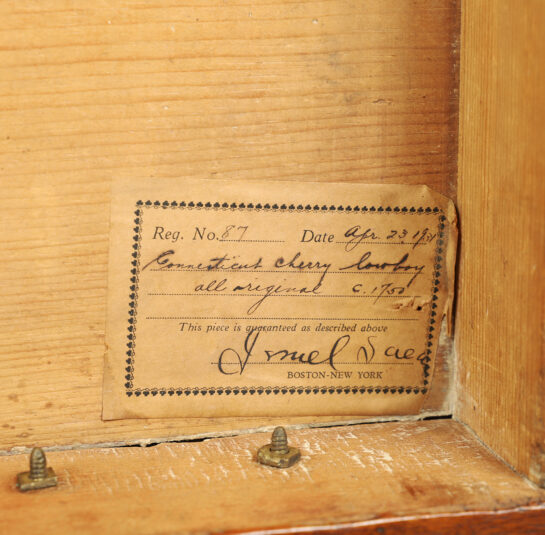 Reg. No. 87 Date Apr. 23, 1931
Connecticut cherry lowboy
all original c. 1750
This piece is guaranteed as described above
Israel Sack
BOSTON-NEW YORK